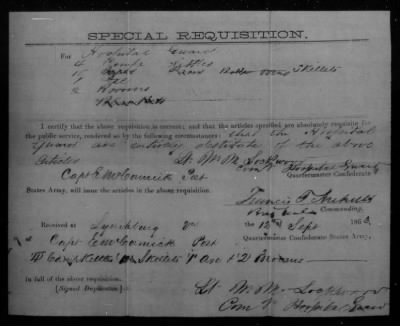 SPECIAL REQUISITION.
For Hospital Guard
4 Camp Kettles
1 Axe
2 Brooms
I certify that the above requisition is correct; and that the articles specified are absolutely requisite for
the public service, rendered so by the following circumstances: that the Hospital
Guard are entirely destitute of the above
articles Lt. W. M. Lockwood
Com'd'g Hospital Guard
Capt E McCormick Post Quartermaster Confederate
States Army, will issue the articles in the above requisition.
Commanding.
Received at Lynchburg Va the 12 Sept 1863,
of Capt E McCormick Post Quartermaster Confederate States Army,
4 Camp Kettles Skillets 1 Axe & 2 Brooms
in full of the above requisition.
[Signed Duplicates] Lt W. M. Lockwood
Hospital Guard